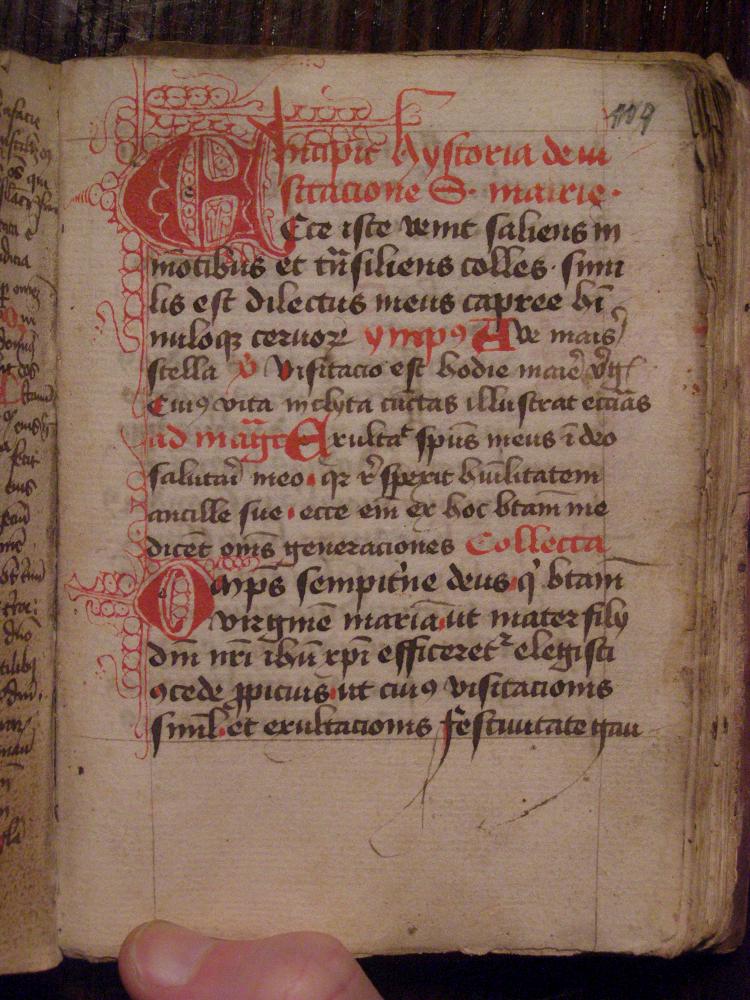 119
Incipit hystoria de vi
sitacione S. marie.
Ecce iste venit saliens in
mōtibus et trāsiliens colles. simi
lis est dilectus meus capree hī
nuloqꝫ ceruoꝝ ympꝰ Ave maris
stella v̄ Visitacio est hodie marie v̄g
Cuiꝰ vita inclyta cūctas illustrat eccīas
ad mag̅t Exultat spūs meus ī deo
salutari meo. qꝛ respexit hūilitatem
ancille sue. ecce em̄ ex hoc btam̄ me
dicēt om̄s generaciones Collecta
Om̅ps sempitn̄e deus q̄ btam̄
virginē mariā ut mater filij
dn̄i nr̄i ihū xpī efficeret᷑ elegisti
ꝯcede ꝓpicius ut cuiꝰ visitacionis
siml̄ et exultacionis festiuitate gau